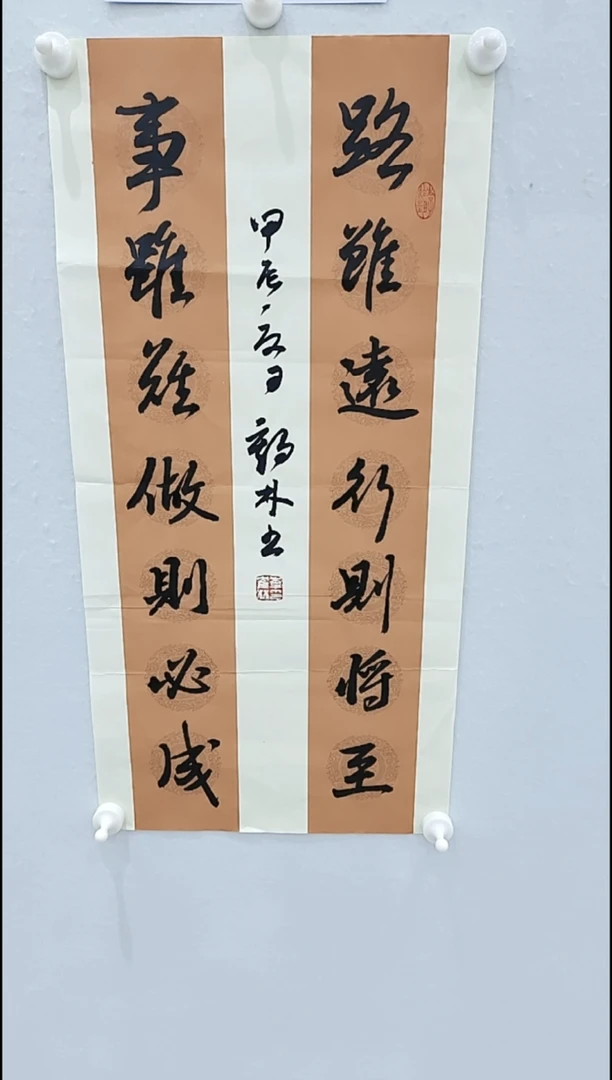 路雖遠行則將至
事雖難做則必成
甲辰之夏月 鹤林书